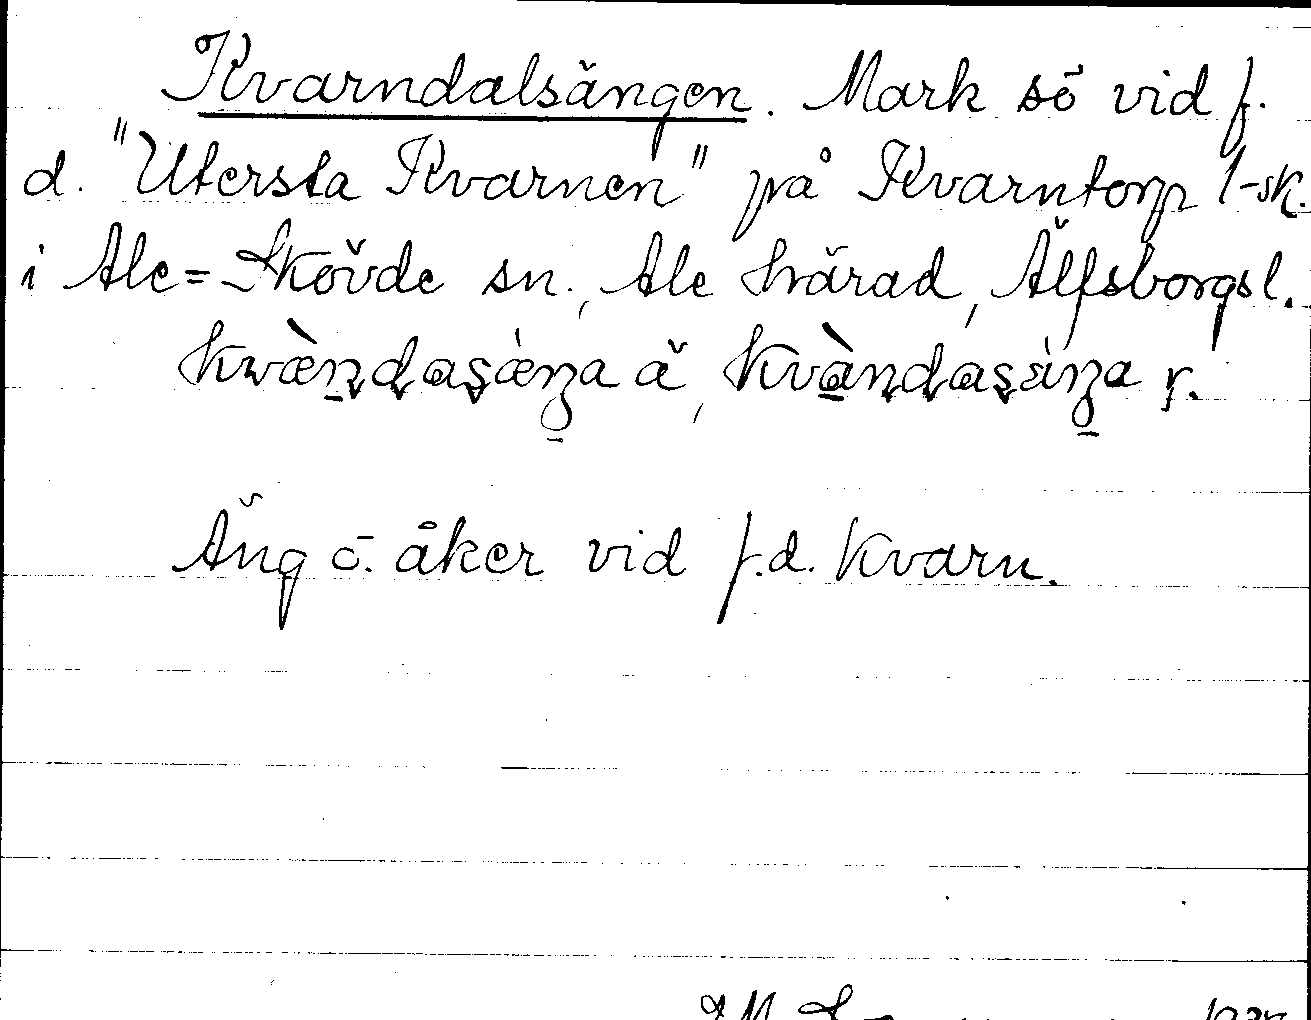 Kvarndalsängen. Mark sö vid f.
d. "Utersta Kvarnen" på Kvarntorp 1-sk.
i Ale=Skövde sn., Ale härad, Älfsborgsl.
kwæ̀ṇḍaṣæ̀ŋa ä, kvàṇḍaṣàŋa y.
Äng o. åker vid f.d. kvarn.